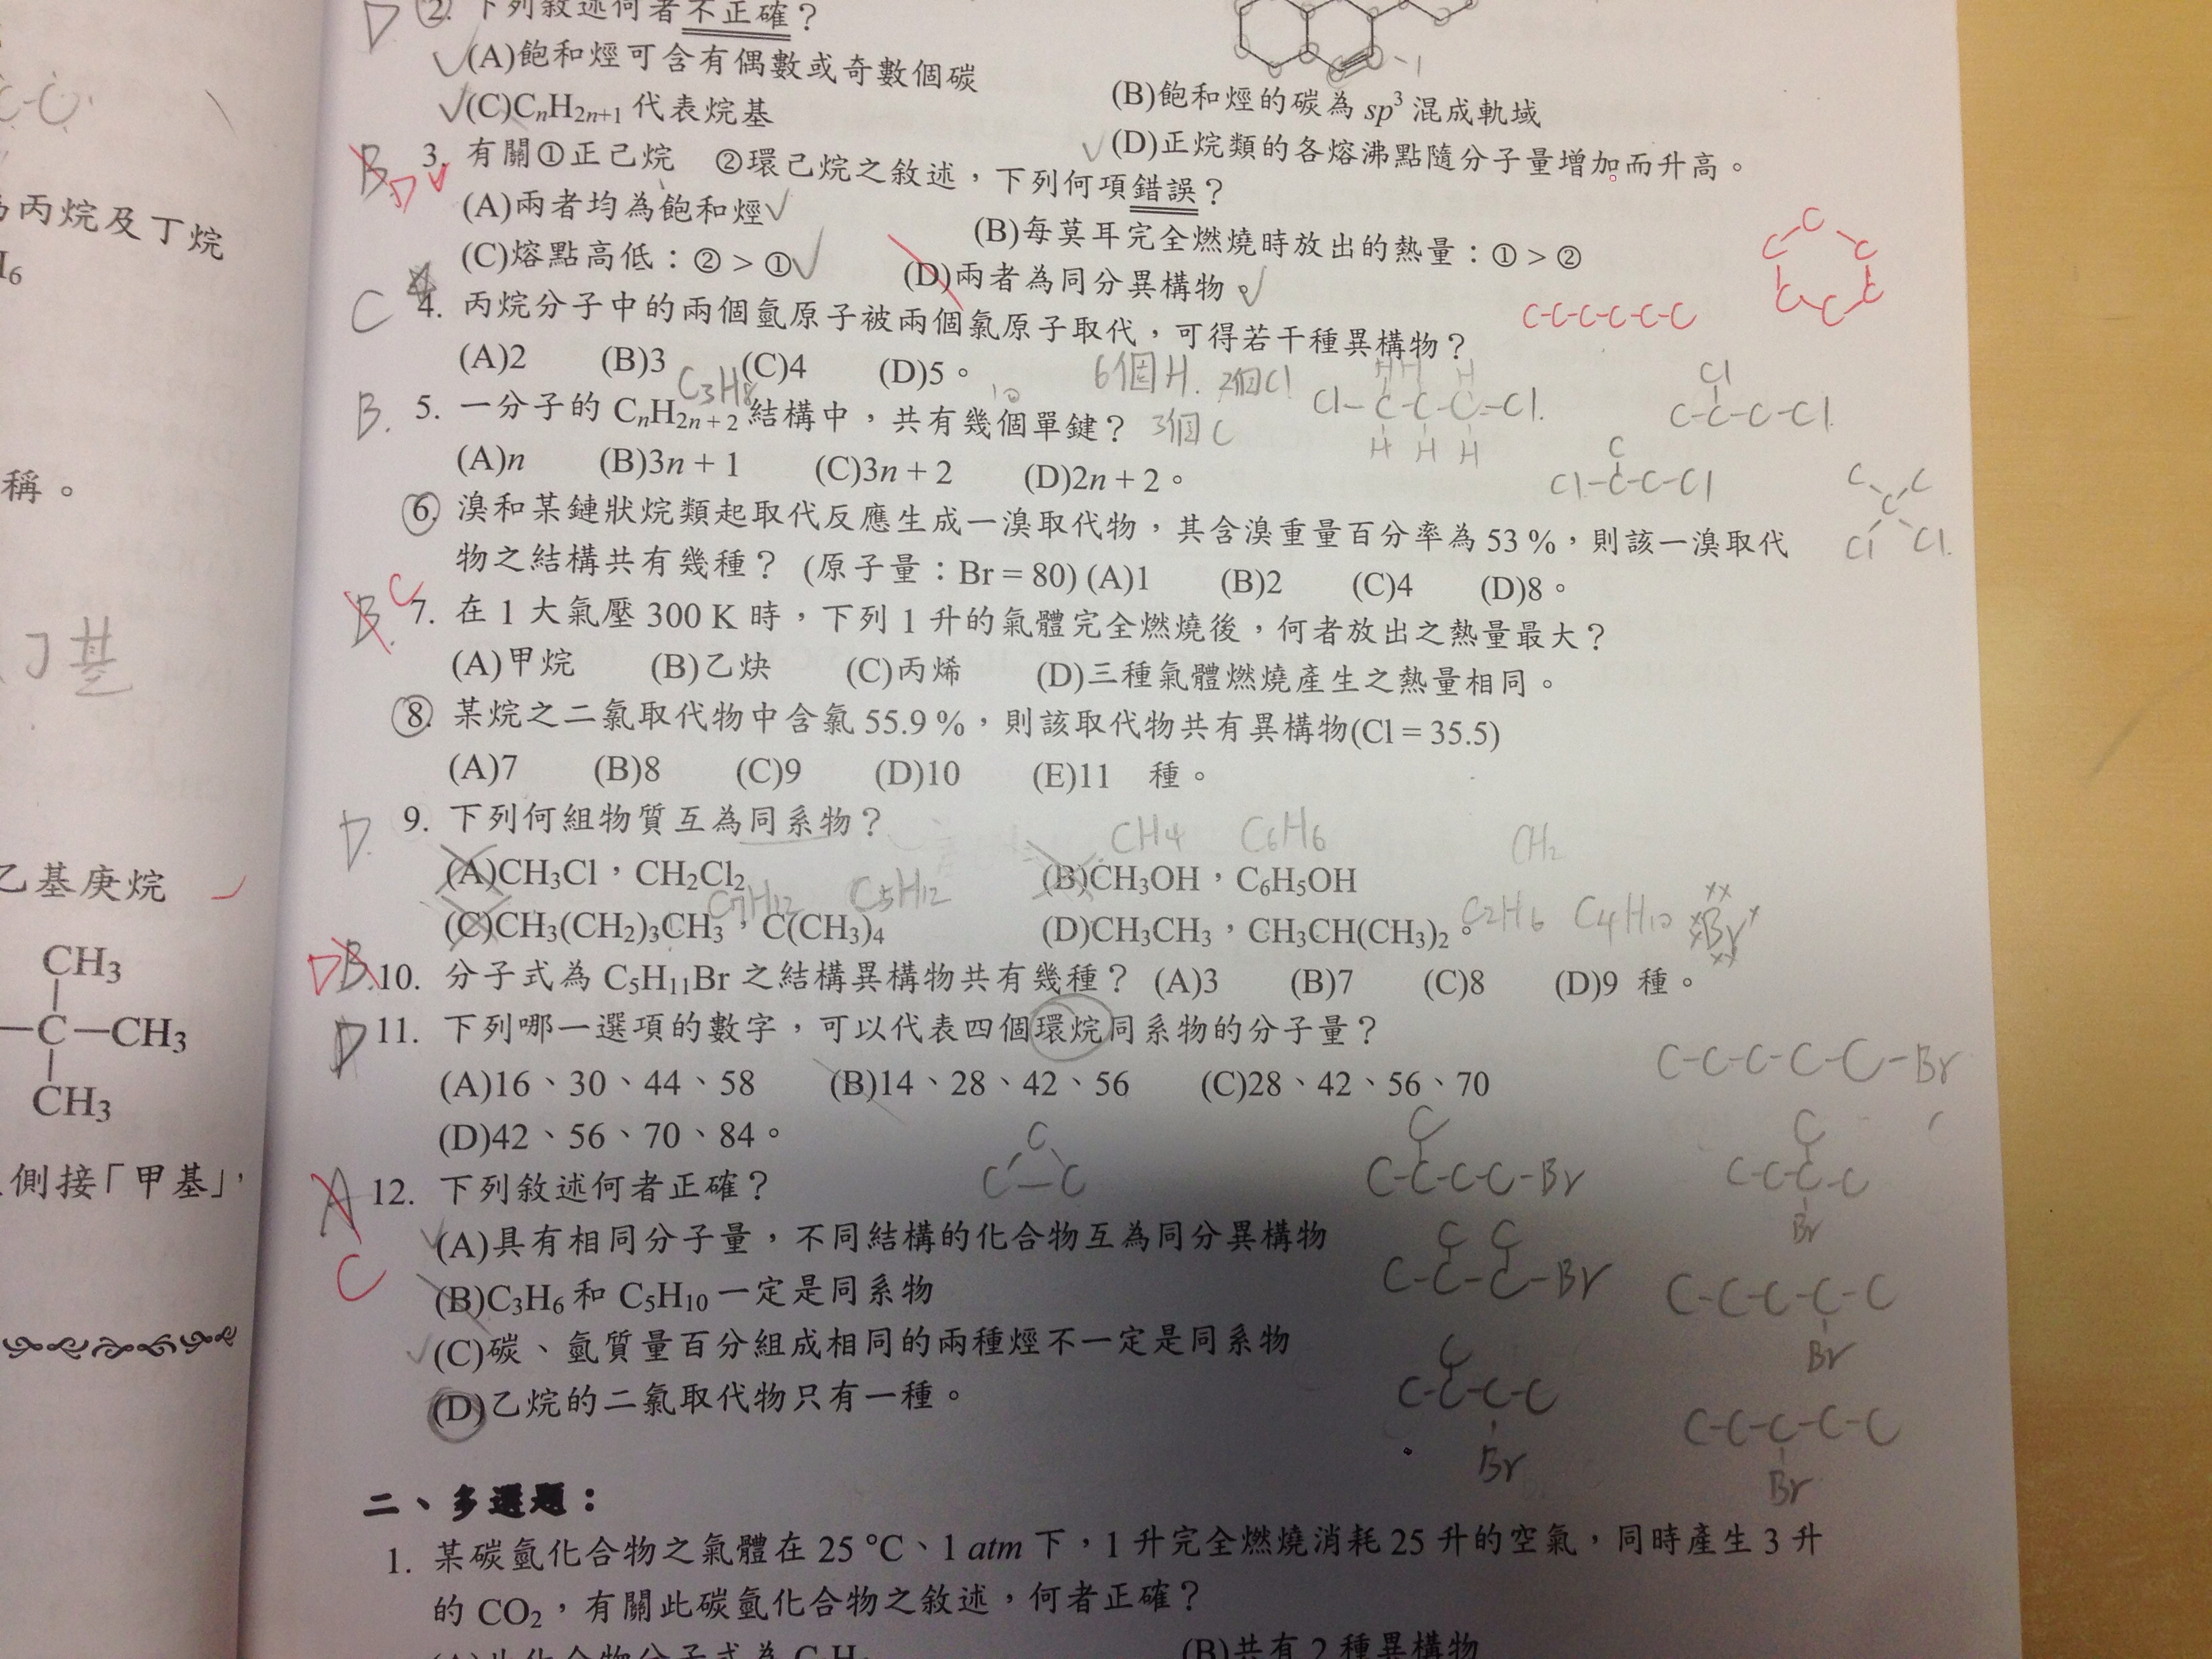 D ②. 下列敘述何者不正確？
(A)飽和烴可含有偶數或奇數個碳
(B)飽和烴的碳為 sp³ 混成軌域
(C)CₙH₂ₙ₊₁ 代表烷基
(D)正烷類的各熔沸點隨分子量增加而升高。
B D 3. 有關①正己烷 ②環己烷之敘述，下列何項錯誤？
(A)兩者均為飽和烴
(B)每莫耳完全燃燒時放出的熱量：①＞②
(C)熔點高低：②＞①
(D)兩者為同分異構物。
C-C-C-C-C-C
C 4. 丙烷分子中的兩個氫原子被兩個氯原子取代，可得若干種異構物？
(A)2 (B)3 (C)4 (D)5。
C₃H₈ 6個H. 2個Cl
3個C
B. 5. 一分子的 CₙH₂ₙ₊₂ 結構中，共有幾個單鍵？
(A)n (B)3n + 1 (C)3n + 2 (D)2n + 2。
⑥ 溴和某鏈狀烷類起取代反應生成一溴取代物，其含溴重量百分率為 53 %，則該一溴取代
物之結構共有幾種？ (原子量：Br = 80) (A)1 (B)2 (C)4 (D)8。
B. C 7. 在 1 大氣壓 300 K 時，下列 1 升的氣體完全燃燒後，何者放出之熱量最大？
(A)甲烷 (B)乙炔 (C)丙烯 (D)三種氣體燃燒產生之熱量相同。
⑧. 某烷之二氯取代物中含氯 55.9 %，則該取代物共有異構物(Cl = 35.5)
(A)7 (B)8 (C)9 (D)10 (E)11 種。
D. 9. 下列何組物質互為同系物？
CH₄ C₆H₆ CH₂
(A)CH₃Cl，CH₂Cl₂ (B)CH₃OH，C₆H₅OH
C₇H₁₂ C₅H₁₂
(C)CH₃(CH₂)₃CH₃，C(CH₃)₄ (D)CH₃CH₃，CH₃CH(CH₃)₂。 C₂H₆ C₄H₁₀ Br
D B. 10. 分子式為 C₅H₁₁Br 之結構異構物共有幾種？ (A)3 (B)7 (C)8 (D)9 種。
D 11. 下列哪一選項的數字，可以代表四個環烷同系物的分子量？
(A)16、30、44、58 (B)14、28、42、56 (C)28、42、56、70
C-C-C-C-C-Br
(D)42、56、70、84。
A C 12. 下列敘述何者正確？
(A)具有相同分子量，不同結構的化合物互為同分異構物
(B)C₃H₆ 和 C₅H₁₀ 一定是同系物
(C)碳、氫質量百分組成相同的兩種烴不一定是同系物
(D)乙烷的二氯取代物只有一種。
二、多選題：
1. 某碳氫化合物之氣體在 25 ℃、1 atm 下，1 升完全燃燒消耗 25 升的空氣，同時產生 3 升
的 CO₂，有關此碳氫化合物之敘述，何者正確？
(B)共有 2 種異構物
丙烷及丁烷
H₆
稱。
丁基
乙基庚烷
CH₃
—C—CH₃
CH₃
側接「甲基」，